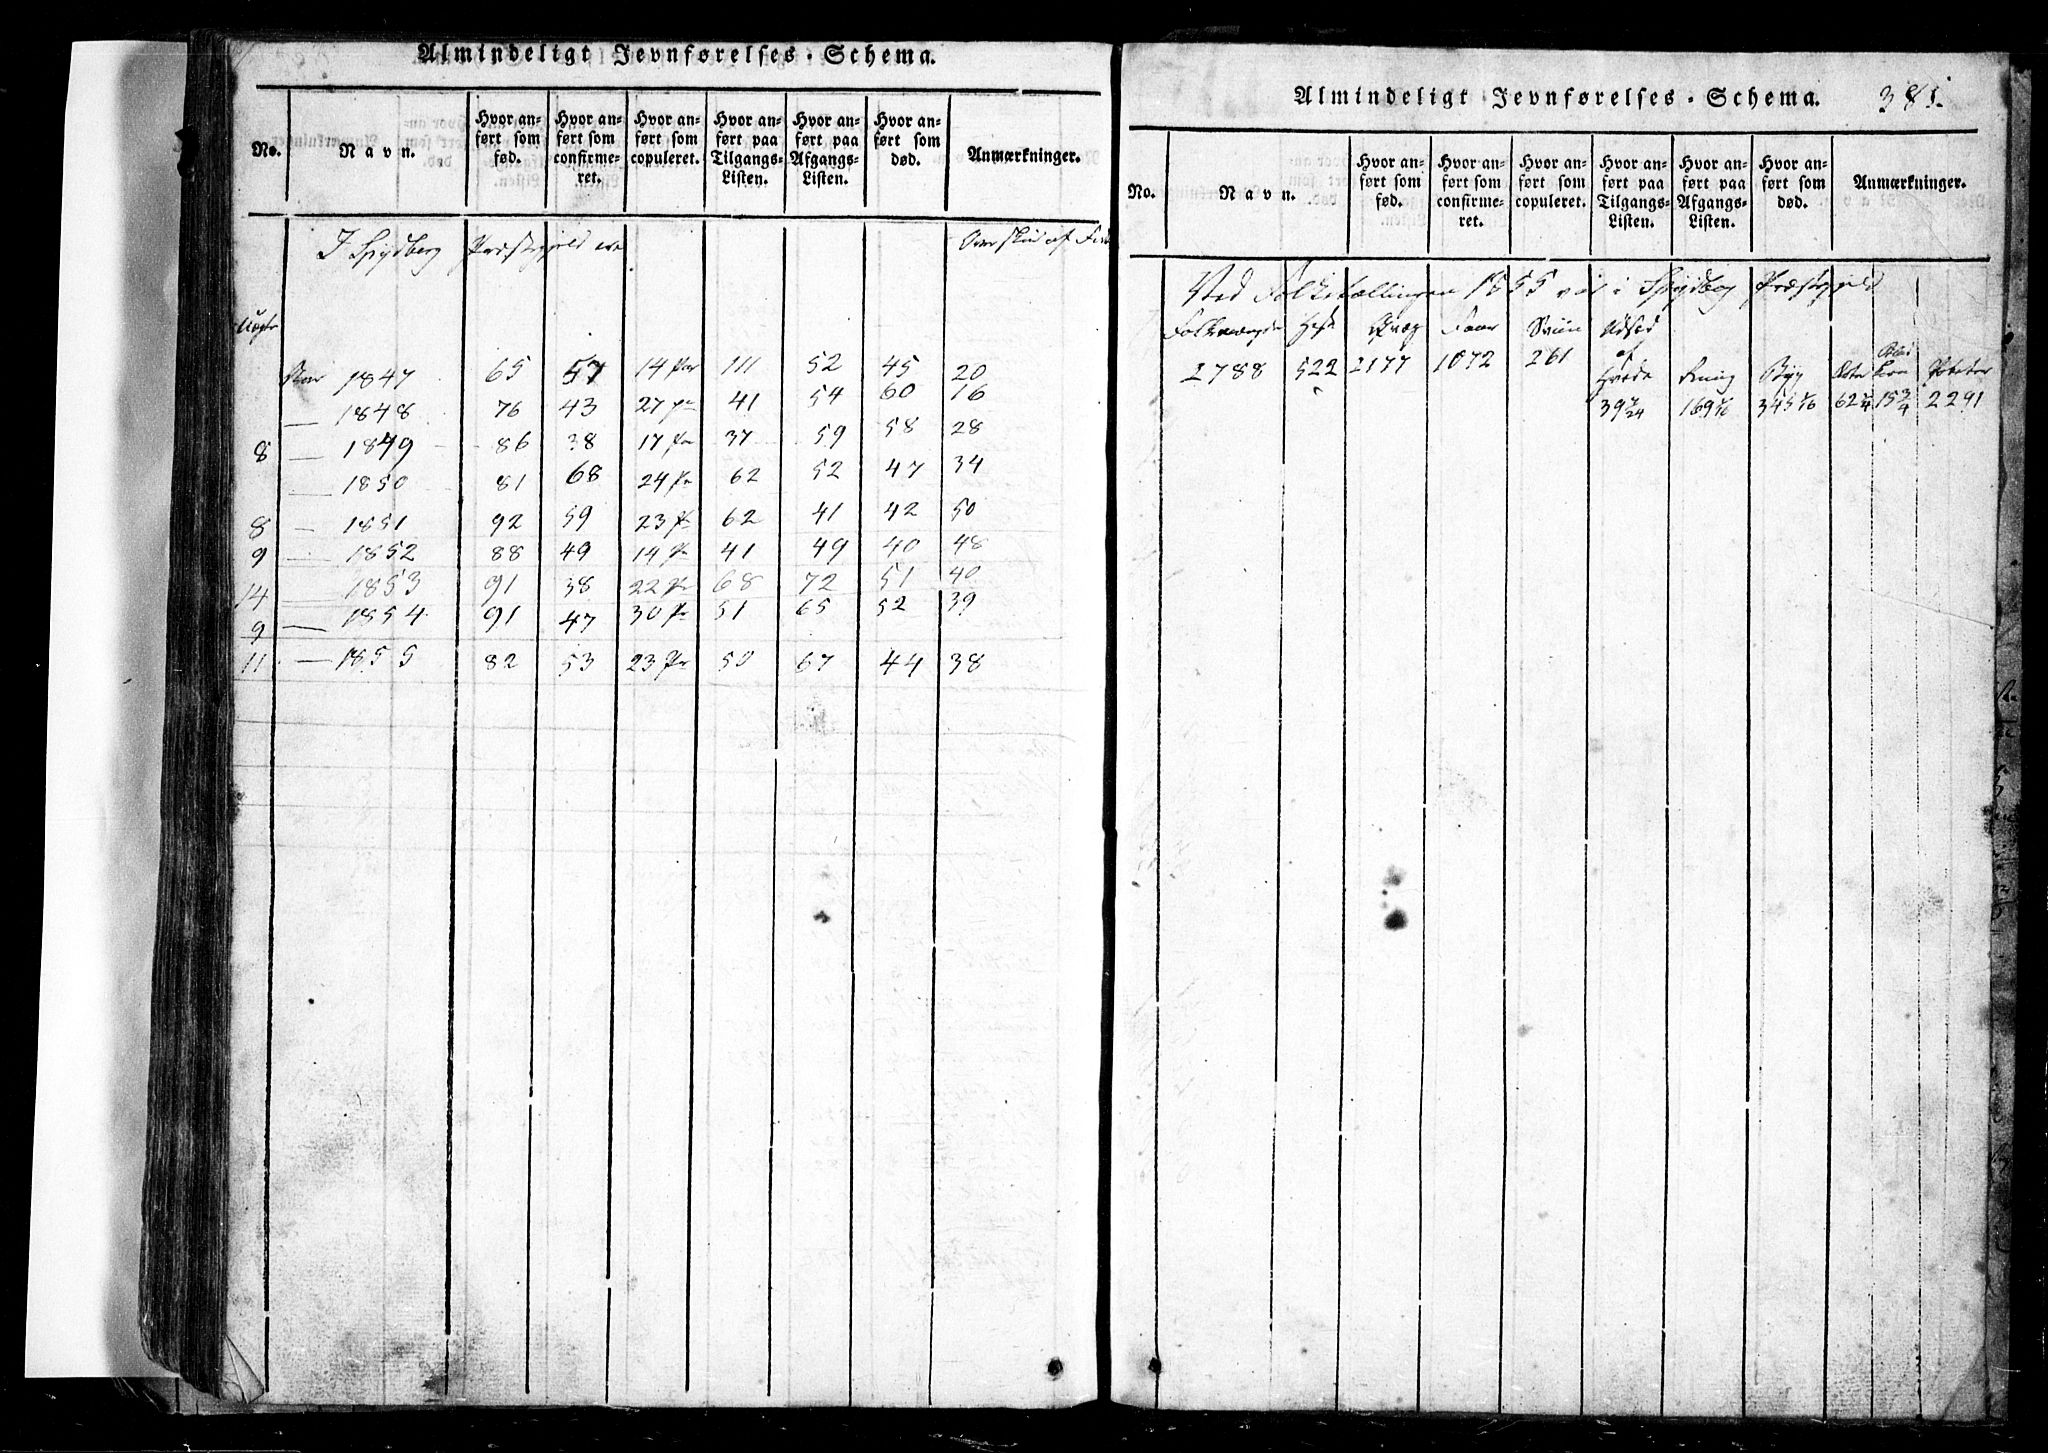 Almindeligt Jevnførelses-Schema.
No. Navn. Hvor anført som fød. Hvor anført som confirmeret. Hvor anført som copuleret. Hvor anført paa Tilgangs-Listen. Hvor anført paa Afgangs-Listen. Hvor anført som død. Anmærkninger.
I Spydberg Præstegjeld ere Overskud af
Uægte
Aar 1847 65 57 14 Par 111 52 45 20
— 1848 76 43 27 Par 41 54 60 16
8 — 1849 86 38 17 Par 37 59 58 28
— 1850 81 68 24 Pr 62 52 47 34
8 — 1851 92 59 23 Pr 62 41 42 50
9 — 1852 88 49 14 Pr 41 49 40 48
14 — 1853 91 38 22 Pr 68 72 51 40
9 — 1854 91 47 30 Pr 51 65 52 39
11 — 1855 82 53 23 Pr 50 67 44 38
Almindeligt Jevnførelses-Schema. 381.
No. Navn. Hvor anført som fød. Hvor anført som confirmeret. Hvor anført som copuleret. Hvor anført paa Tilgangs-Listen. Hvor anført paa Afgangs-Listen. Hvor anført som død. Anmærkninger.
Ved Folketællingen 1855 var i Spydberg Præstegjeld
Folkemængde Heste Qvæg Faar Sviin Udsæd
2788 522 2177 1072 261 af
Hvede Byg Poteter
169 345 62 15 3/4 2291